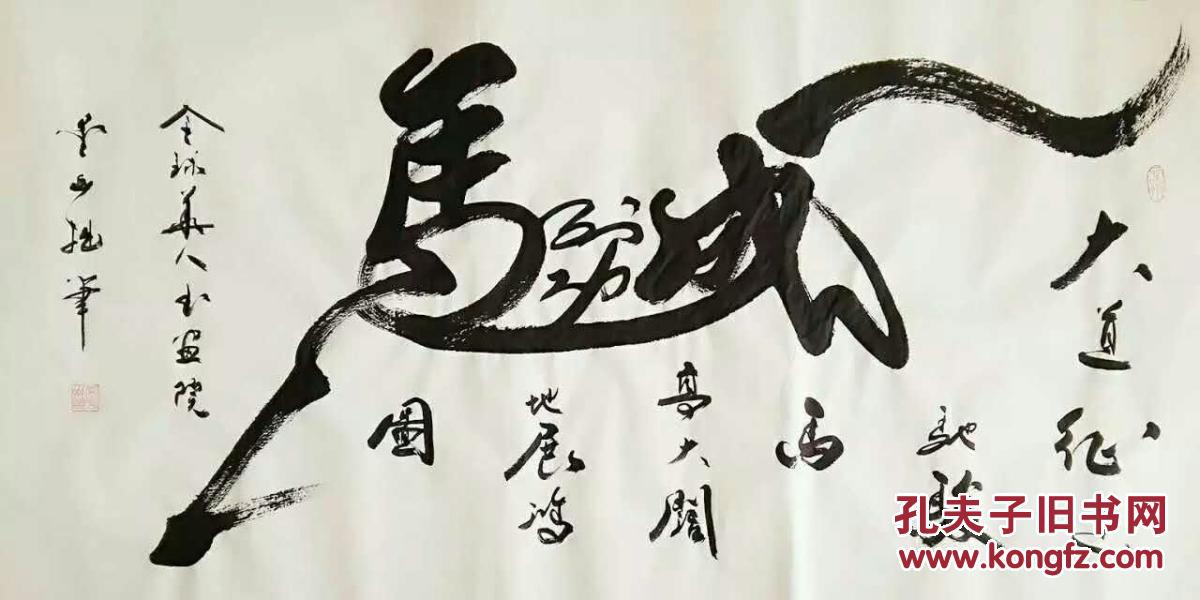 馬到成功
大道征
馳駿
馬
高大闊
地展鴻
圖
全球華人书画院
山拙筆
孔夫子旧书网
www.kongfz.com